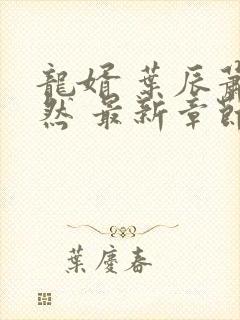 龍婿 葉辰蕭
然 最新章節
葉慶春